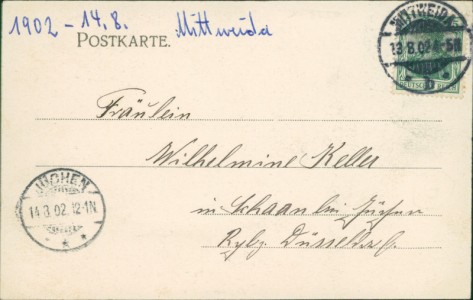 1902 - 14.8. Mittweida
POSTKARTE.
MITTWEIDA
13.8.02. 4-5N
b
Fräulein
Wilhelmine Keller
in Schaan bei Jüchen
Rgbz. Düsseldorf.
JÜCHEN
14.8.02. 12-1N